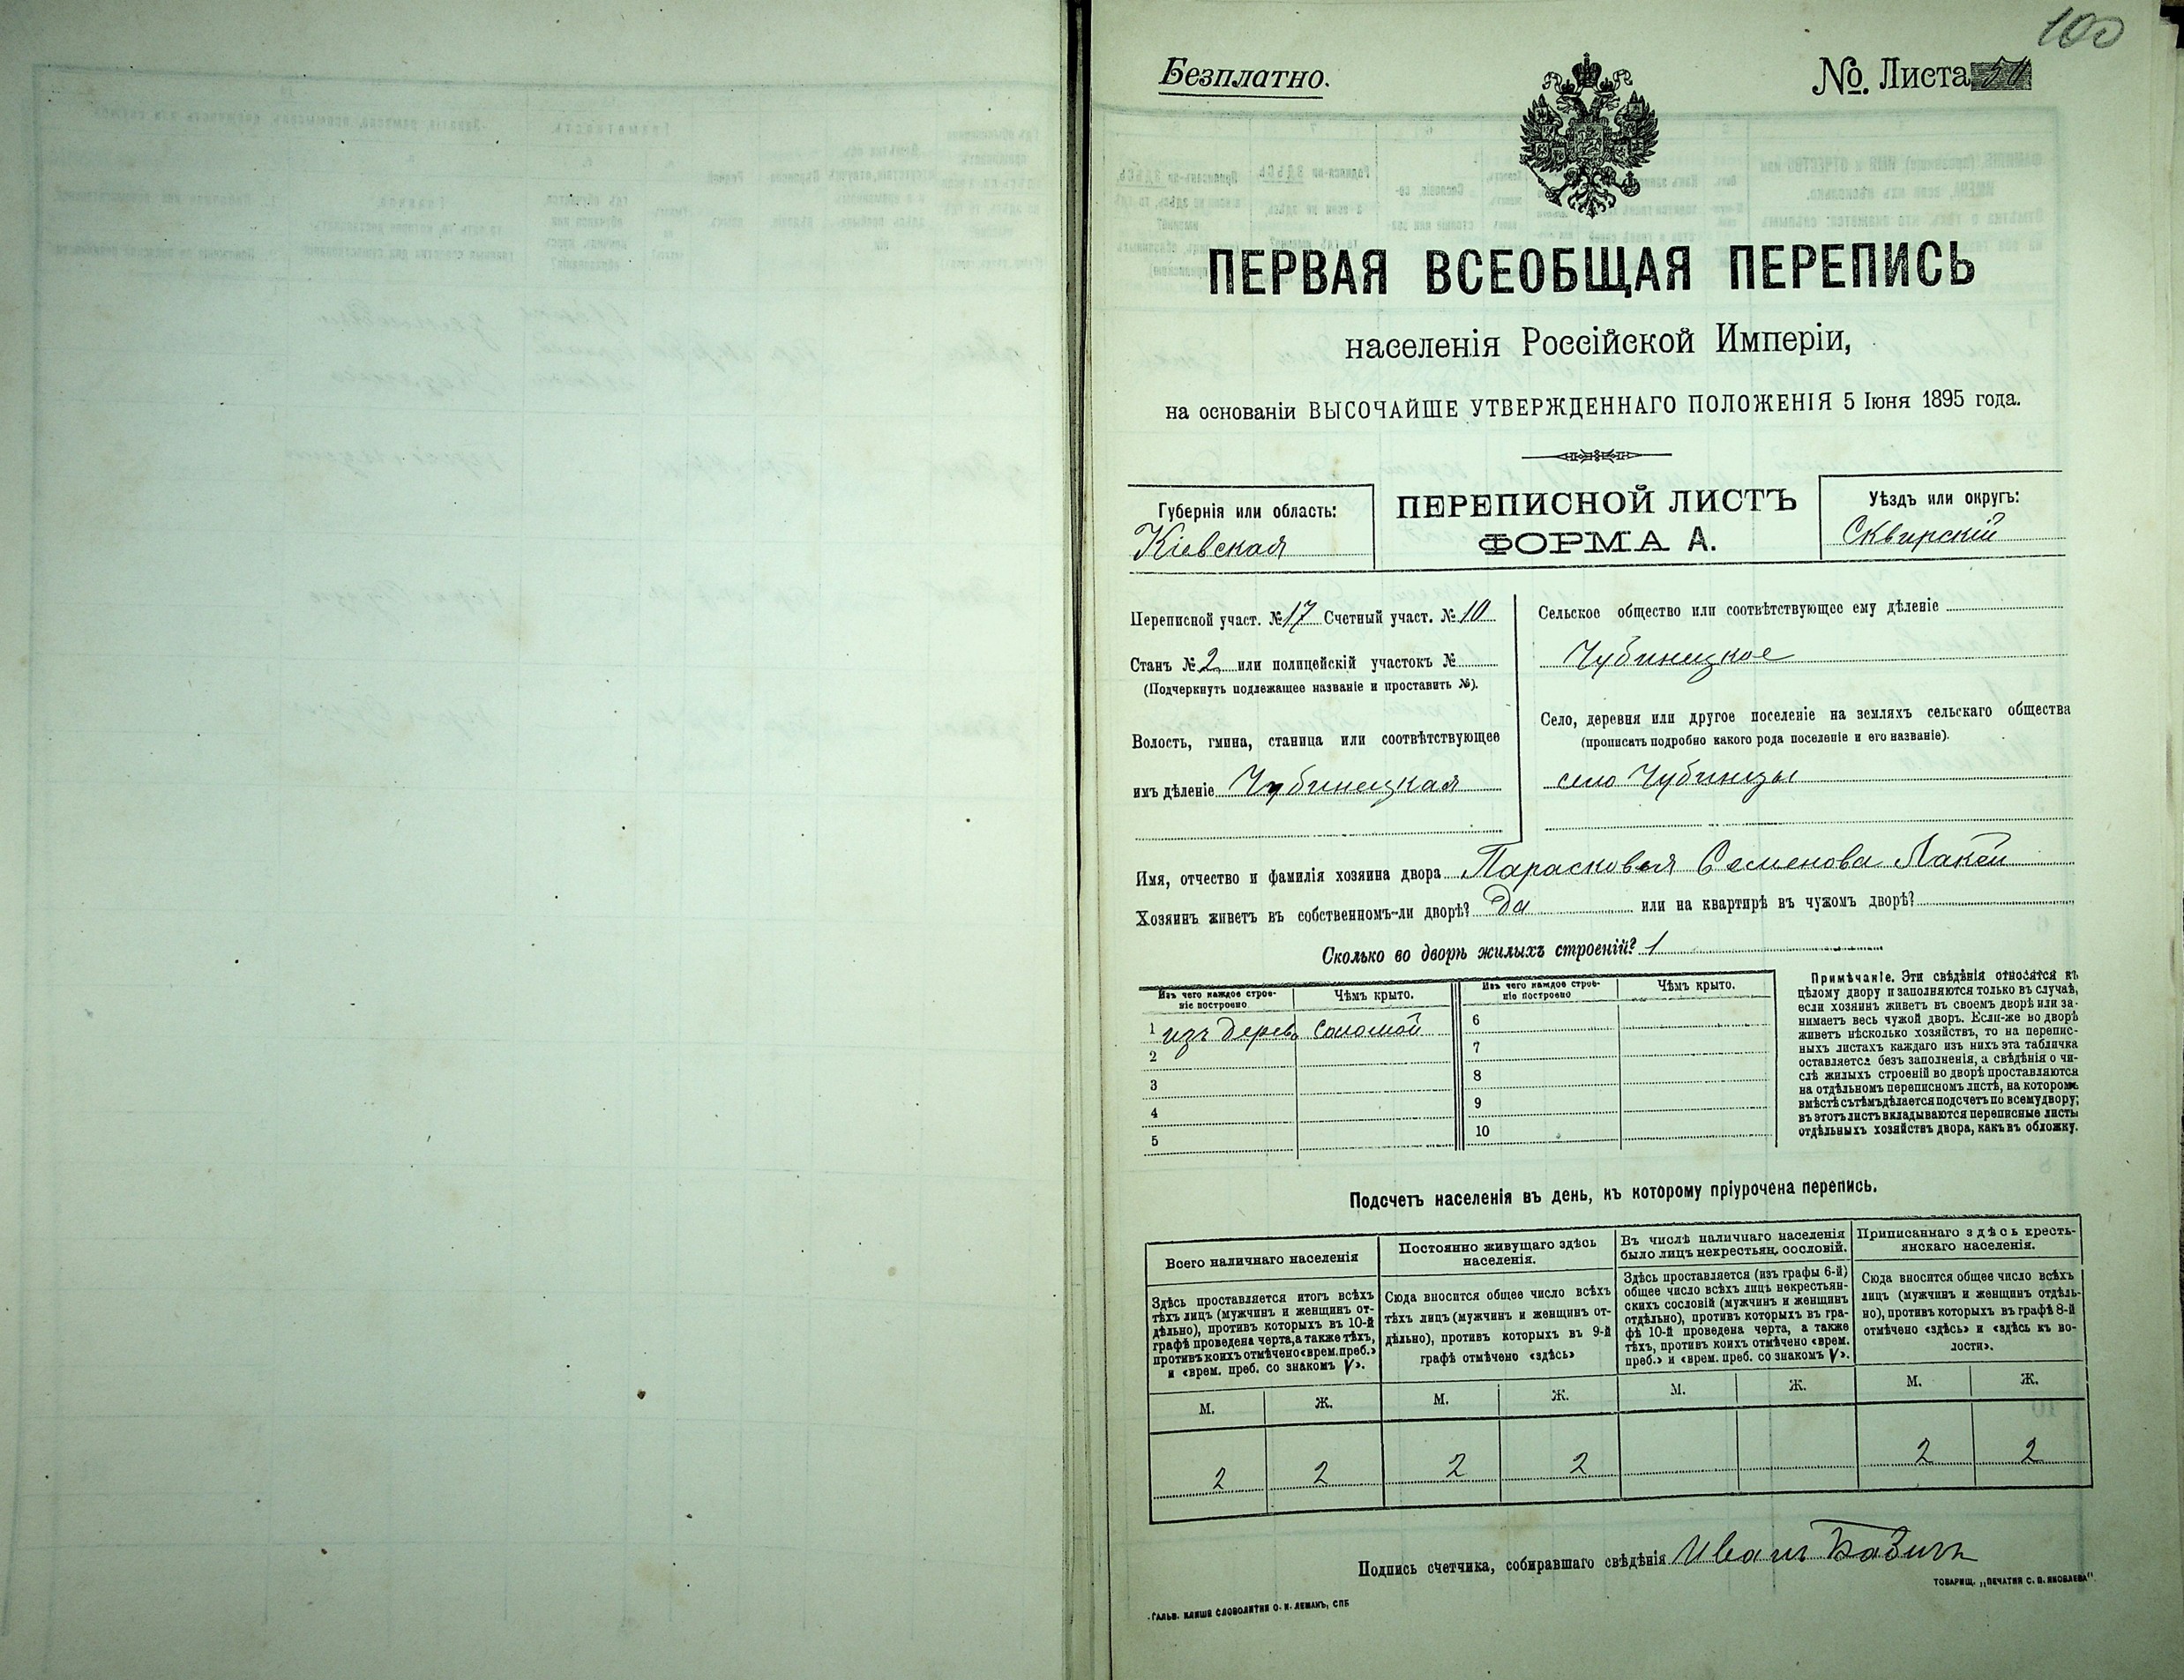 100
Безплатно.
№. Листа
ПЕРВАЯ ВСЕОБЩАЯ ПЕРЕПИСЬ
населенія Россійской Имперіи,
на основаніи ВЫСОЧАЙШЕ УТВЕРЖДЕННАГО ПОЛОЖЕНІЯ 5 Іюня 1895 года.
Губернія или область:
Кіевская
ПЕРЕПИСНОЙ ЛИСТЪ
ФОРМА А.
Уѣздъ или округъ:
Сквирскій
Переписной участ. № 17 Счетный участ. № 10
Станъ № 2 или полицейскій участокъ №
(Подчеркнуть подлежащее названіе и проставить №).
Волость, гмина, станица или соотвѣтствующее
имъ дѣленіе Чубинецкая
Сельское общество или соотвѣтствующее ему дѣленіе
Чубинецкое
Село, деревня или другое поселеніе на земляхъ сельскаго общества
(прописать подробно какого рода поселеніе и его названіе).
село Чубинцы
Имя, отчество и фамилія хозяина двора Парасковья Семенова Лакей
Хозяинъ живетъ въ собственномъ-ли дворѣ? Да или на квартирѣ въ чужомъ дворѣ?
Сколько во дворѣ жилыхъ строеній? 1
Изъ чего каждое строе-
ніе построено
Чѣмъ крыто.
Изъ чего каждое строе-
ніе построено
Чѣмъ крыто.
1 изъ дерева соломой
2
3
4
5
6
7
8
9
10
Примѣчаніе. Эти свѣдѣнія относятся къ
цѣлому двору и заполняются только въ случаѣ,
если хозяинъ живетъ въ своемъ дворѣ или за-
нимаетъ весь чужой дворъ. Если-же во дворѣ
живетъ нѣсколько хозяйствъ, то на перепис-
ныхъ листахъ каждаго изъ нихъ эта табличка
оставляется безъ заполненія, а свѣдѣнія о чи-
слѣ жилыхъ строеній во дворѣ проставляются
на отдѣльномъ переписномъ листѣ, на которомъ
вмѣстѣ съ тѣмъ дѣлается подсчетъ по всему двору;
въ этотъ листъ вкладываются переписные листы
отдѣльныхъ хозяйствъ двора, какъ въ обложку.
Подсчетъ населенія въ день, къ которому пріурочена перепись.
Всего наличнаго населенія
Здѣсь проставляется итогъ всѣхъ
тѣхъ лицъ (мужчинъ и женщинъ от-
дѣльно), противъ которыхъ въ 10-й
графѣ проведена черта, а также тѣхъ,
противъ коихъ отмѣчено «врем. преб.»
и «врем. преб. со знакомъ V».
Постоянно живущаго здѣсь
населенія.
Сюда вносится общее число всѣхъ
тѣхъ лицъ (мужчинъ и женщинъ от-
дѣльно), противъ которыхъ въ 9-й
графѣ отмѣчено «здѣсь»
Въ числѣ наличнаго населенія
было лицъ некрестьян. сословій.
Здѣсь проставляется (изъ графы 6-й)
общее число всѣхъ лицъ некрестьян-
скихъ сословій (мужчинъ и женщинъ
отдѣльно), противъ которыхъ въ гра-
фѣ 10-й проведена черта, а также
тѣхъ, противъ коихъ отмѣчено «врем.
преб.» и «врем. преб. со знакомъ V».
Приписаннаго здѣсь кресть-
янскаго населенія.
Сюда вносится общее число всѣхъ
лицъ (мужчинъ и женщинъ отдѣль-
но), противъ которыхъ въ графѣ 8-й
отмѣчено «здѣсь» и «здѣсь къ во-
лости».
М. Ж. М. Ж. М. Ж. М. Ж.
2 2 2 2 2 2
Подпись счетчика, собиравшаго свѣдѣнія Иванъ
ТОВАРИЩ. „ПЕЧАТНЯ С. П. ЯКОВЛЕВА“.
ГАЛЬВ. КЛИШЕ СЛОВОЛИТНИ О. И. ЛЕМАНЪ, СПБ